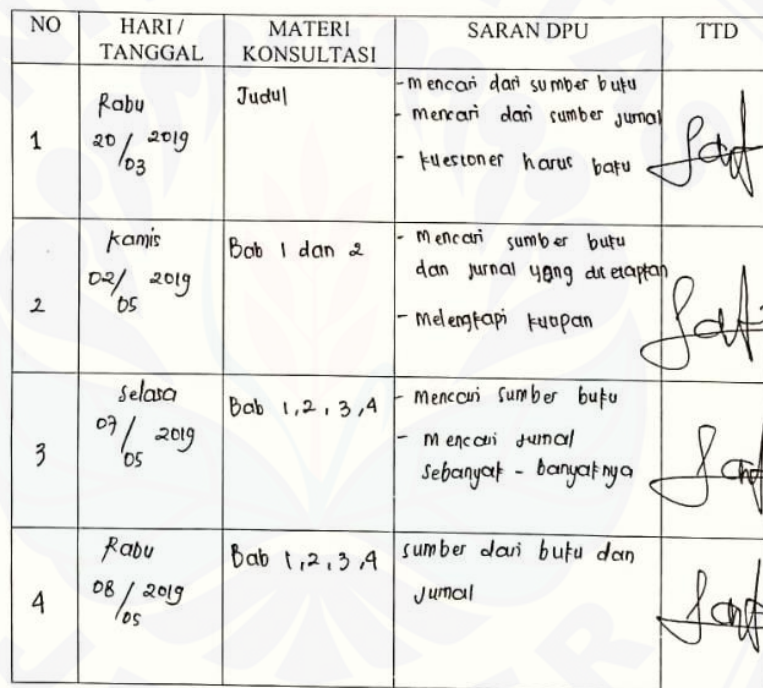 NO HARI / TANGGAL MATERI KONSULTASI SARAN DPU TTD
1
Rabu
20/03 2019
Judul
- mencari dari sumber buku
- mencari dari sumber jurnal
- kuesioner harus baku
2
Kamis
02/05 2019
Bab 1 dan 2
- Mencari sumber buku
dan jurnal yang ditetapkan
- Melengkapi kutipan
3
Selasa
07/05 2019
Bab 1, 2, 3, 4
- Mencari sumber buku
- Mencari jurnal
sebanyak - banyaknya
4
Rabu
08/05 2019
Bab 1, 2, 3, 4
sumber dari buku dan
Jurnal